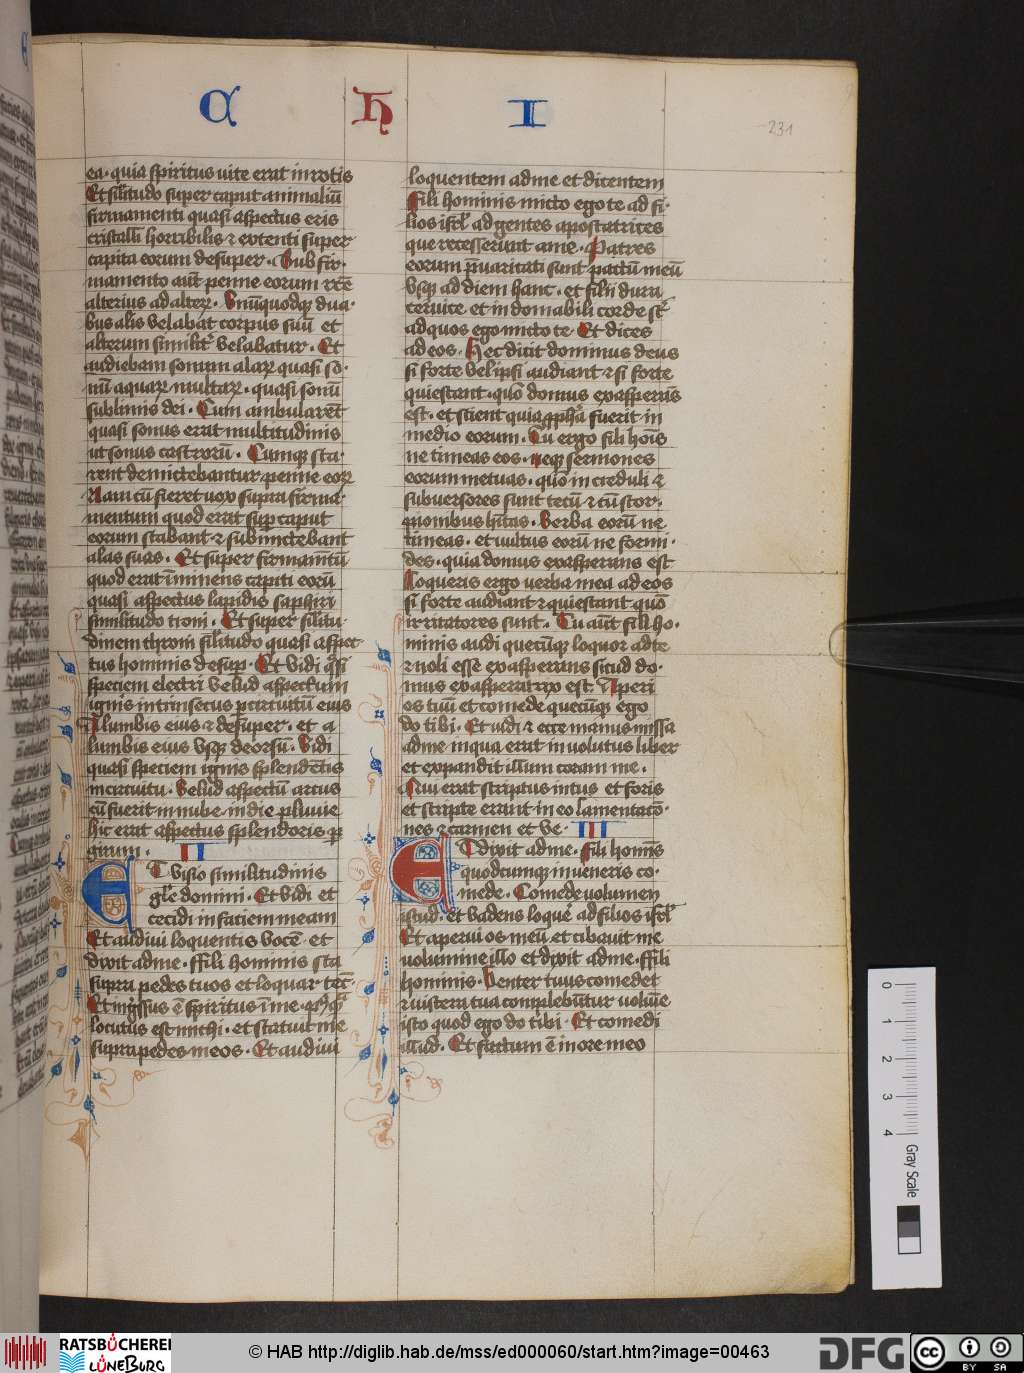 a h I
231
ea · quia spiritus vite erat in rotis
Et silitudo super caput animaliū
firmamenti quasi aspectus eris
cristalli horribilis ⁊ extenti super
capita eorum desuper · Sub fir·
mamento aūt penne eorum rcē
alterius ad alterꝝ · Vnūquodqꝫ dua·
bus alis velabat corpus suū et
alterum similitᷣ velabatur · Et
audiebam sonum alarꝝ quasi so·
nū aquarꝝ multarꝝ · quasi sonū
sublimis dei · Cum ambularēt
quasi sonus erat multitudinis
ut sonus castrorū · Cumqꝫ sta·
rent demictebantur penne eorꝝ
Nam cū fieret vox supra firma·
mentum quod erat sup caput
eorum stabant ⁊ submictebant
alas suas · Et super firmamētū
quod erat īminens capiti eorū
quasi aspectus lapidis saphiri
similitudo troni · Et super silitu·
dinem throni silitudo quasi aspec
tus hominis desuꝑ · Et vidi qᷓsi
speciem electri velud aspectum
ignis intrinsecus ꝑ circuitū eius
A lumbis eius ⁊ desuper · et a
lumbis eius vsqꝫ deorsū · Vidi
quasi speciem ignis splendētis
in circuitu · Velud aspectū arcus
cū fuerit in nube in die pluuie
hic erat aspectus splendoris ꝑ
girum · II
ET visio similitudinis
glē domini · Et vidi et
cecidi in faciem meam
Et audiui loquentis vocē et
dixit ad me · ffili hominis sta
supra pedes tuos et loquar tecū
Et īgressus ē spiritus ī me ·
locutus est michi · et statuit me
supra pedes meos · Et audiui
loquentem ad me et dicentem
Fili hominis micto ego te ad fi·
lios isrl ad gentes apostatrices
que recesserunt a me · Patres
eorum p̄uaricati sunt pactū meū
vsqꝫ ad diem hanc · et filij dura
ceruice et indomabili corde sᷓt
ad quos ego micto te · Et dices
ad eos · Hec dicit dominus deus
si forte vel ipsi audiant ⁊ si forte
quiescant · quō domus exasperās
est · et scient quia ꝓpha fuerit in
medio eorum · Tu ergo fili hoīs
ne timeas eos · neqꝫ sermones
eorum metuas · quō increduli ⁊
subuersores sunt tecū ⁊ cū scor·
pionibus hītas · Verba eorū ne
timeas · et vultus eorū ne formi·
des · quia domus exasperans est
Loqueris ergo verba mea ad eos
si forte audiant ⁊ quiescant quō
irritatores sunt · Tu aūt fili ho·
minis audi quecūqꝫ loquor ad te
⁊ noli esse exasperans sicud do·
mus exasperatrix est · Aperi
os tuū et comede quecūqꝫ ego
do tibi · Et vidi ⁊ ecce manus missa
ad me in qua erat inuolutus liber
et expandit illum coram me ·
Qui erat scriptus intus et foris
et scripte erant in eo lamentacō·
nes ⁊ carmen et ve · III
ET dixit ad me · Fili hoīs
quodcumqꝫ inueneris co·
mede · Comede volumen
istud · et vadens loquēˀ ad filios isrl
Et aperui os meū et cibauit me
volumine illo et dixit ad me · ffili
hominis · Venter tuus comedet
⁊ viscera tua complebūtur volūie
isto quod ego do tibi · Et comedi
illud · Et factum ē in ore meo
0 1 2 3 4
Gray Scale
RATSBÜCHEREI
LÜNEBURG
© HAB http://diglib.hab.de/mss/ed000060/start.htm?image=00463
DFG
cc
BY SA